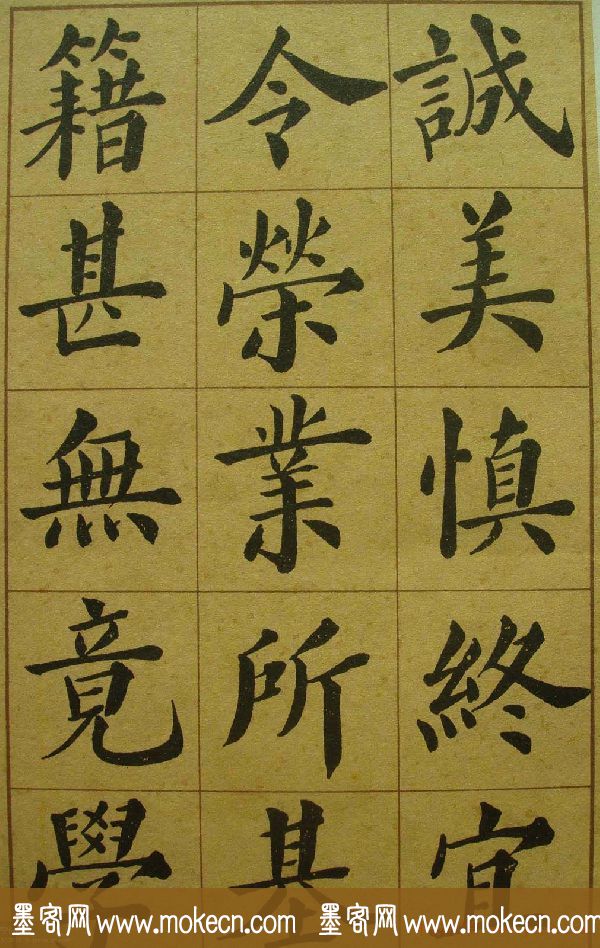 誠美慎終宜
令榮業所基
籍甚無竟學
墨客网 www.mokecn.com 墨客网 www.mokecn.com